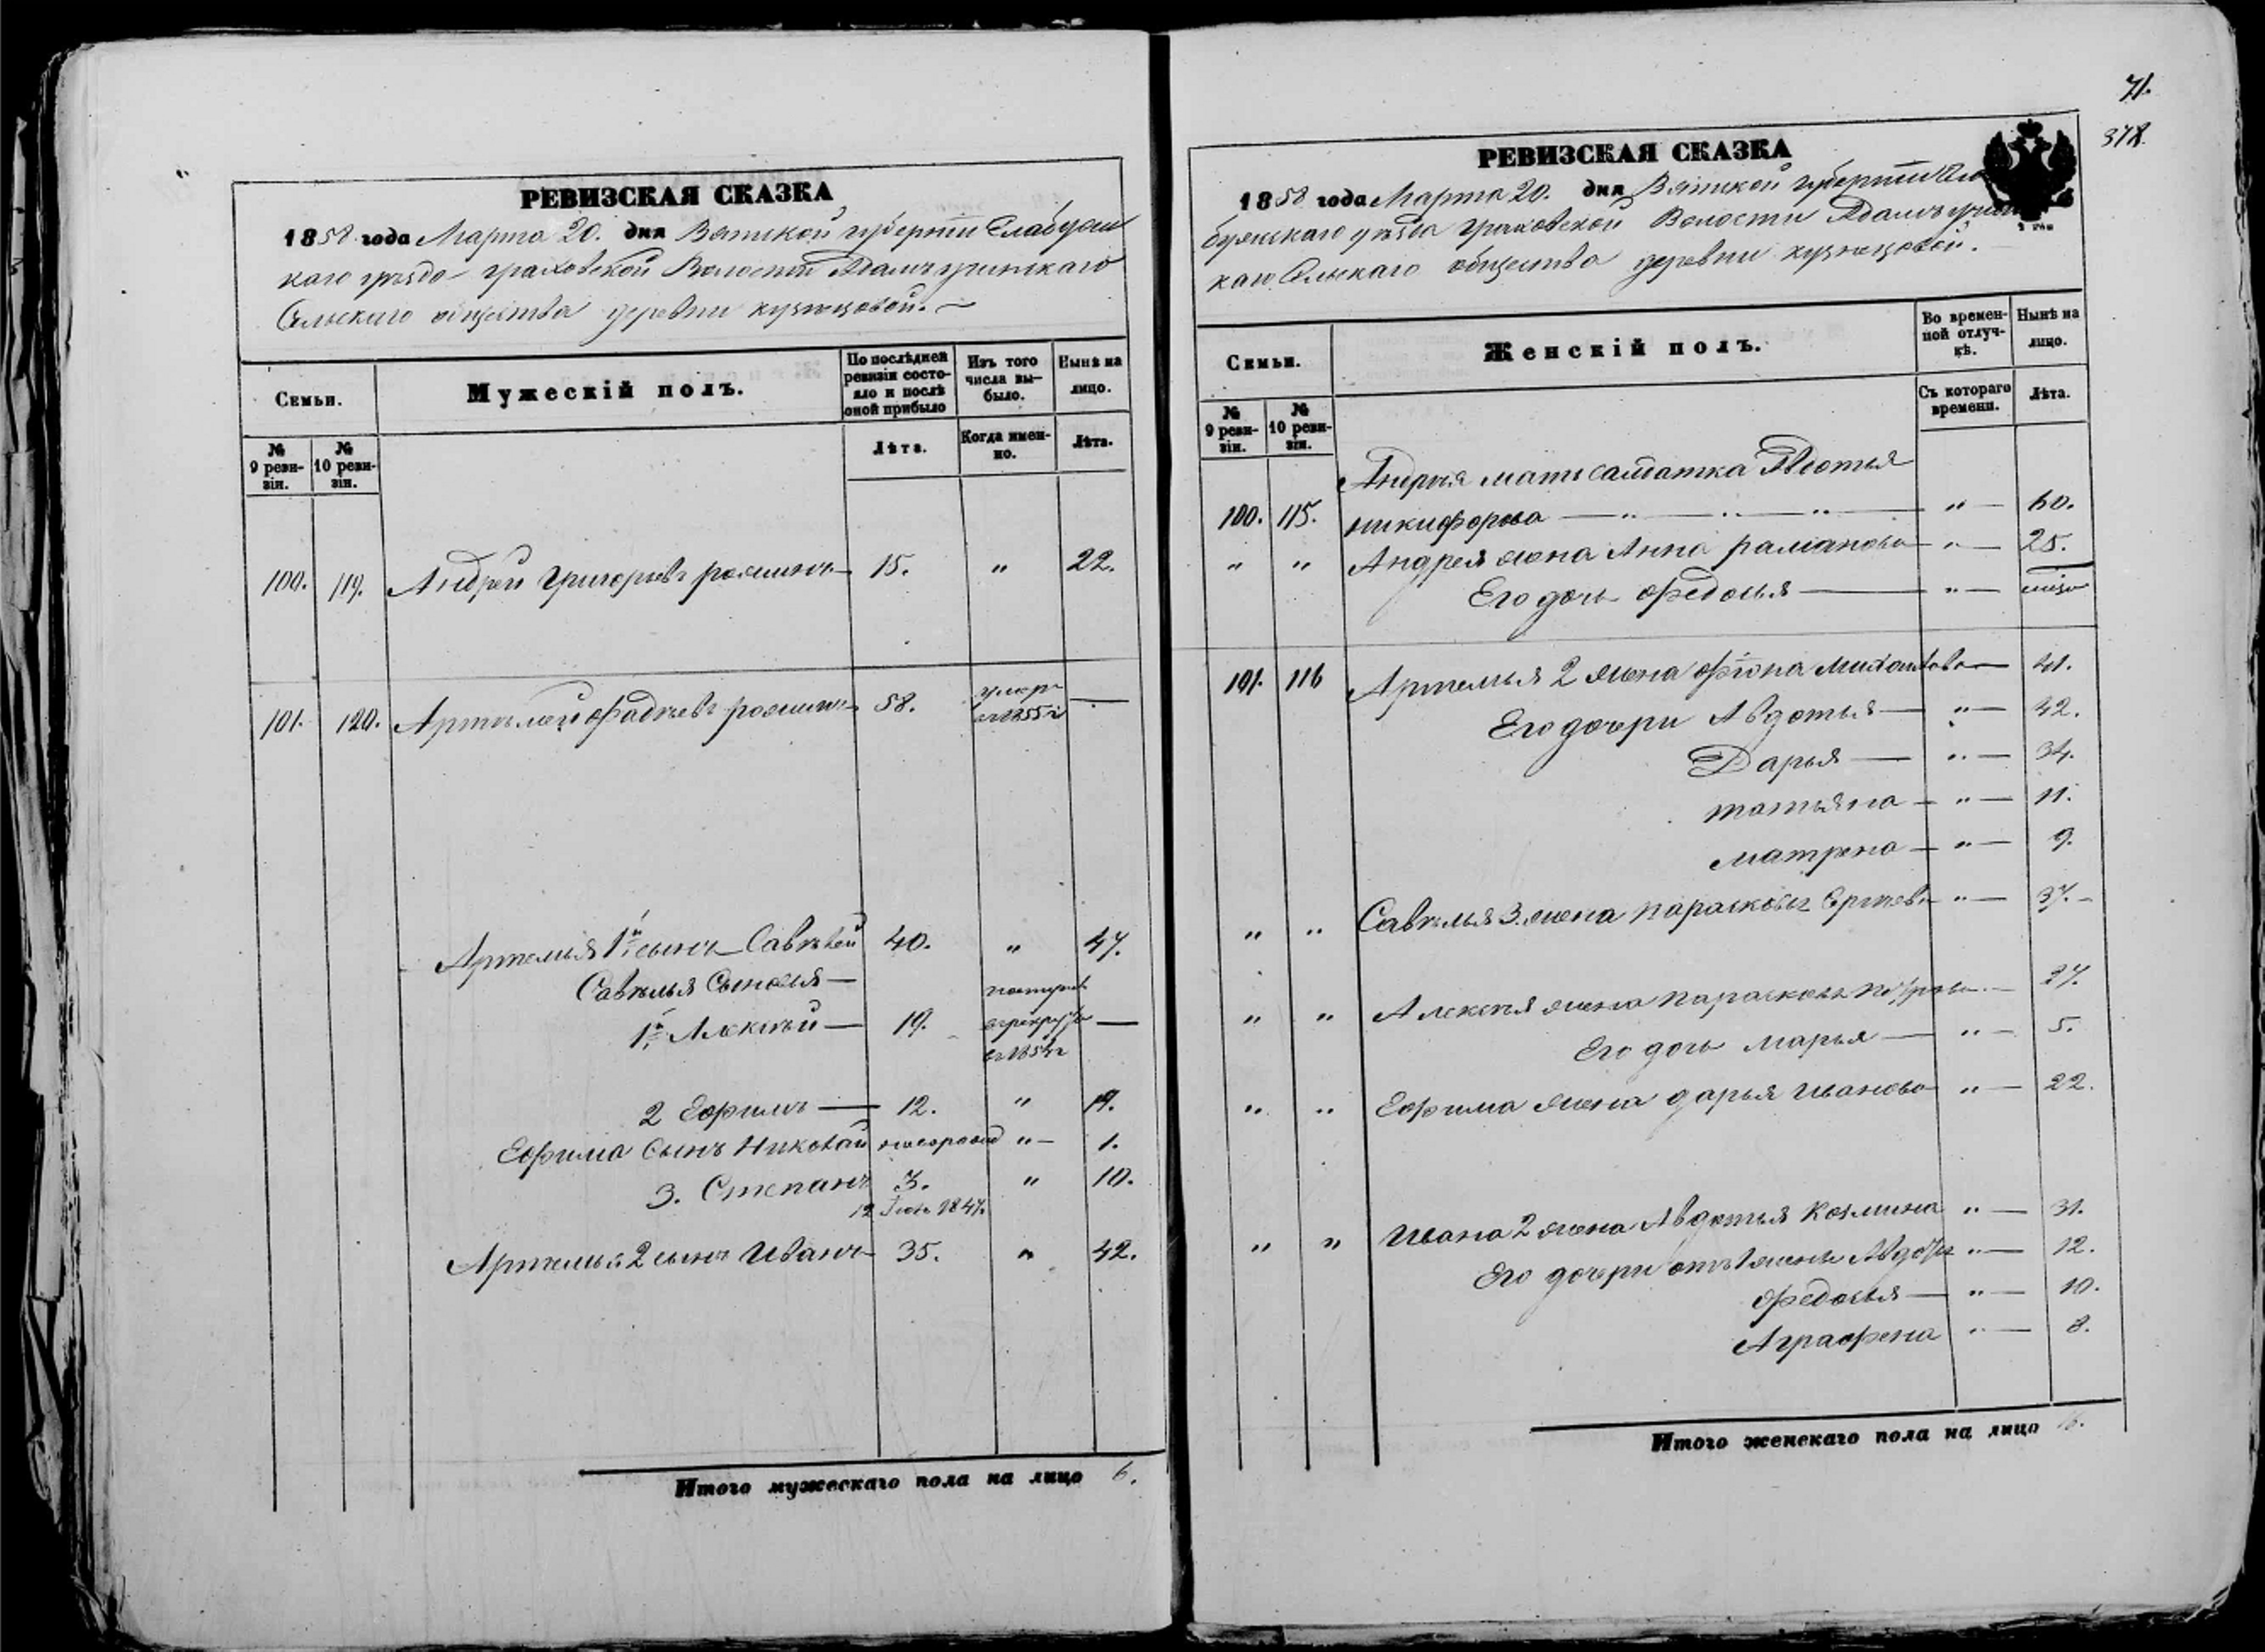 РЕВИЗСКАЯ СКАЗКА
1858 года Марта 20. дня Вятской губернiи Елабуж
каго уѣзда Граховской Волости Адамъ учинскаго
Сельскаго общества деревни Кузнецовой.
Семьи.
Мужескiй полъ.
По послѣдней ревизiи состояло и послѣ оной прибыло
Изъ того числа выбыло.
Нынѣ на лицо.
№ 9 ревизiи.
№ 10 ревизiи.
Лѣта.
Когда именно.
Лѣта.
100. 119. Андрей Григорьевъ 15. " 22.
101. 120. Артемей Фадѣевъ 58. умеръ въ 1855 г —
Артемья 1й сынъ Савѣлей 40. " 47.
Савѣлья Сыновья —
1й Алексѣй — 19. поступилъ въ рекруты —
2 Ефимъ — 12. " 19.
Ефима Сынъ Николай новорожд " — 1.
3. Степанъ 3. " 10.
12 1847.
Артемья 2 сынъ Иванъ 35. " 42.
Итого мужескаго пола на лицо 6.
71.
378.
РЕВИЗСКАЯ СКАЗКА
1858 года Марта 20. дня Вятской губернiи Ела
бужскаго уѣзда Граховской Волости Адамъ учинс
каго Сельскаго общества деревни Кузнецовой.
Семьи.
Женскiй полъ.
Во временной отлучкѣ.
Нынѣ на лицо.
№ 9 ревизiи.
№ 10 ревизiи.
Съ котораго времени.
Лѣта.
Андрѣя мать Авдотья
100. 115. Никифорова — " — " — " — " — 60.
" " Андрея жена Анна Раманова " — 25.
Его дочь Федосья — " —
101. 116 Артемья 2 жена Фiона Михайлова — 41.
Его дочери Авдотья — " — 42.
Дарья — " — 34.
Татьяна — " — 11.
Матрена — " — 9.
" " Савѣлья 3. жена Парасковья Сергѣева " — 37. —
" " Алексѣя жена Парасковья Петрова — 27.
Его дочь Марья — " — 5.
" " Ефима жена Дарья Иванова " — 22.
" " Ивана 2 жена Авдотья Козмина " — 31.
Его дочери отъ 1 жены Авдотья " — 12.
Федосья — " — 10.
Аграфена " — 8.
Итого женскаго пола на лицо 16.